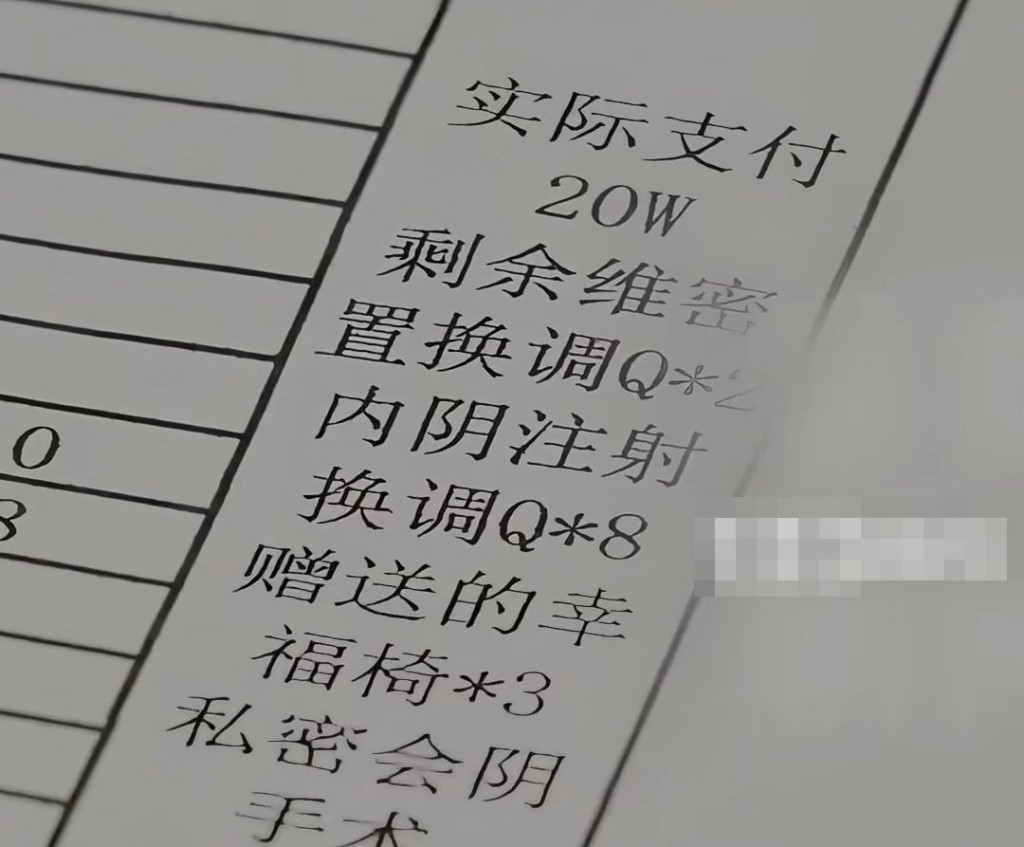 实际支付
20W
剩余维密
置换调Q*2
内阴注射
换调Q*8
赠送的幸
福椅*3
私密会阴
手术
0
8